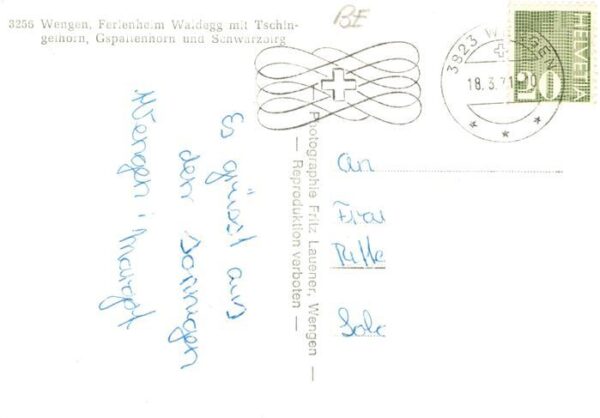 3256 Wengen, Ferienheim Waldegg mit Tschin-
gelhorn, Gspaltenhorn und Schwarzbirg
BE
3823 WENGEN
18.3.71
HELVETIA
20
Es grüsst aus
dem sonnigen
Wengen
Photographie Fritz Lauener, Wengen
— Reproduktion verboten —
An
Frau